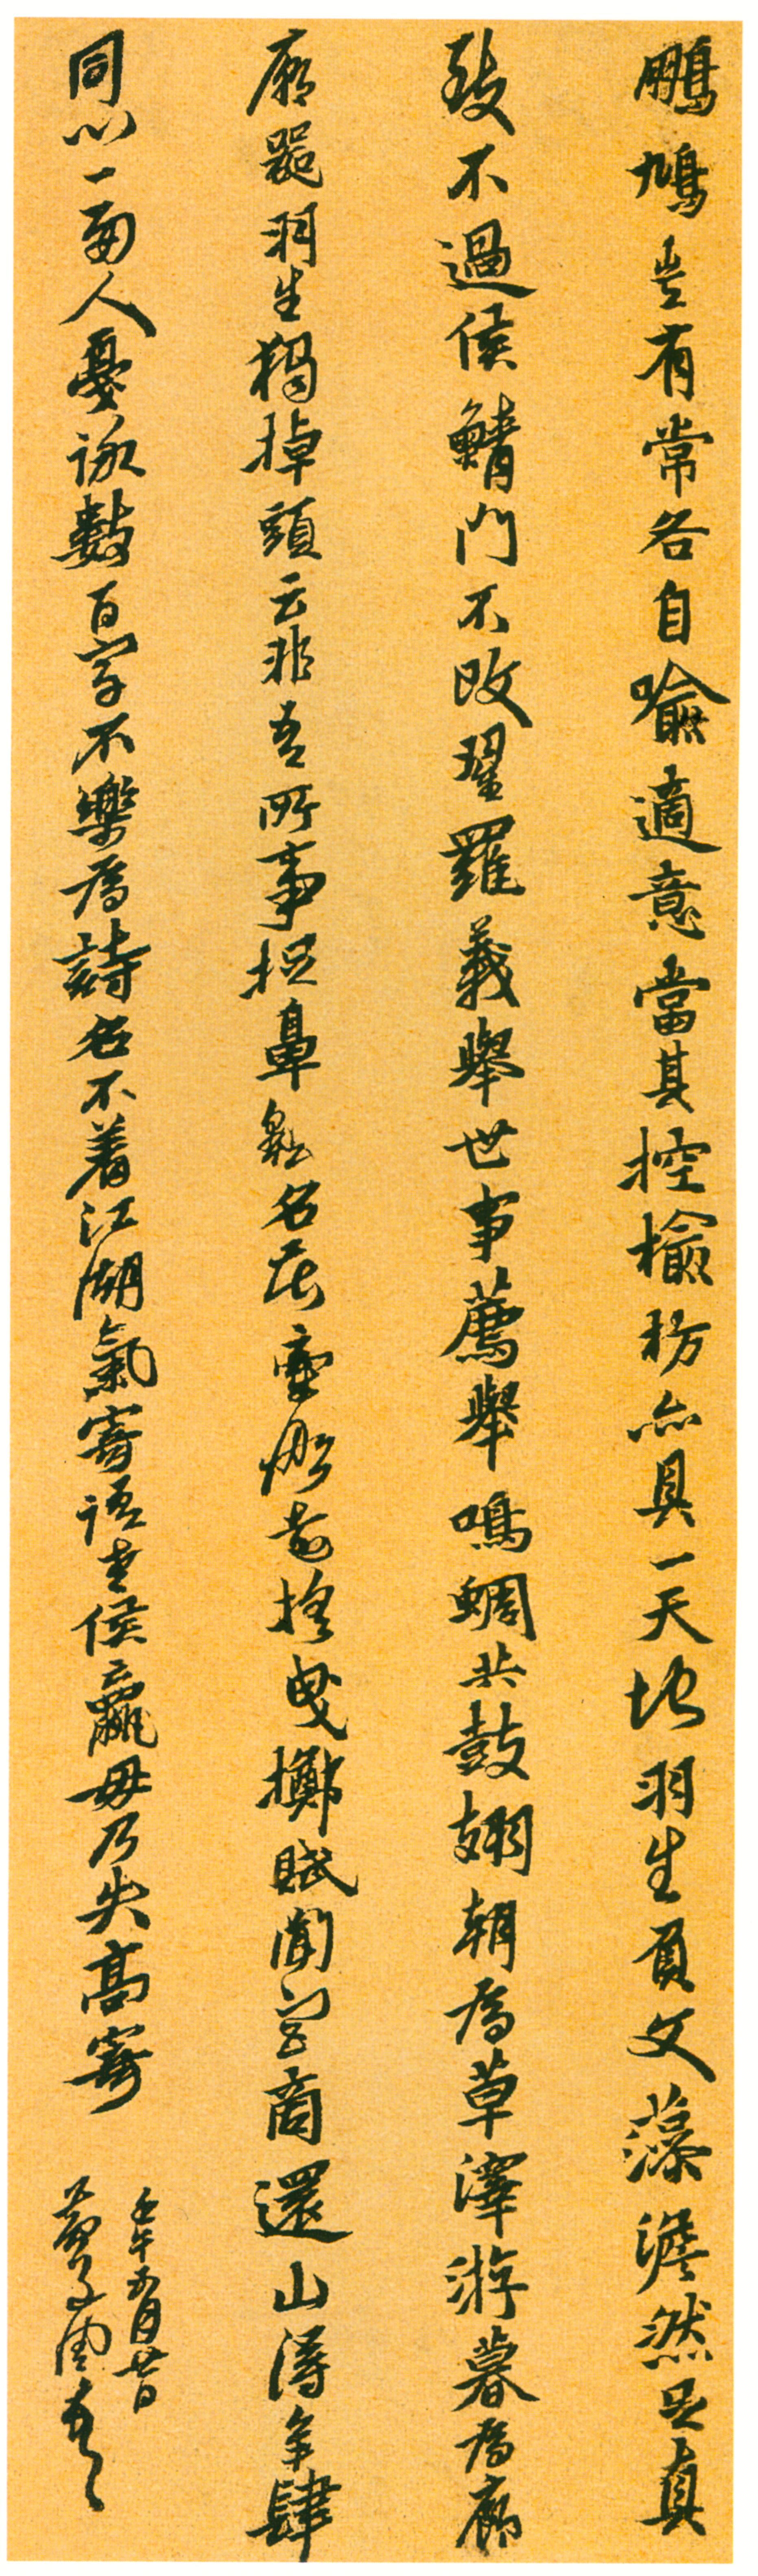 鵬鳩豈有常各自喻適意當其控檢枋亦具一天地羽生負文藻澹然足真
致不過侯鯖門不改翟羅義舉世事薦舉鳴蜩共鼓翅朝為草澤游暮為廊
廟器羽生獨掉頭云非吾所事掩鼻逃名在壑前捨曳擲賦閒宮商還山得爭肆
同心一兩人憂詠數百字不樂為詩名不着江湖氣寄語老侯嬴毋乃失高寄
壬午五月廿日
黃子